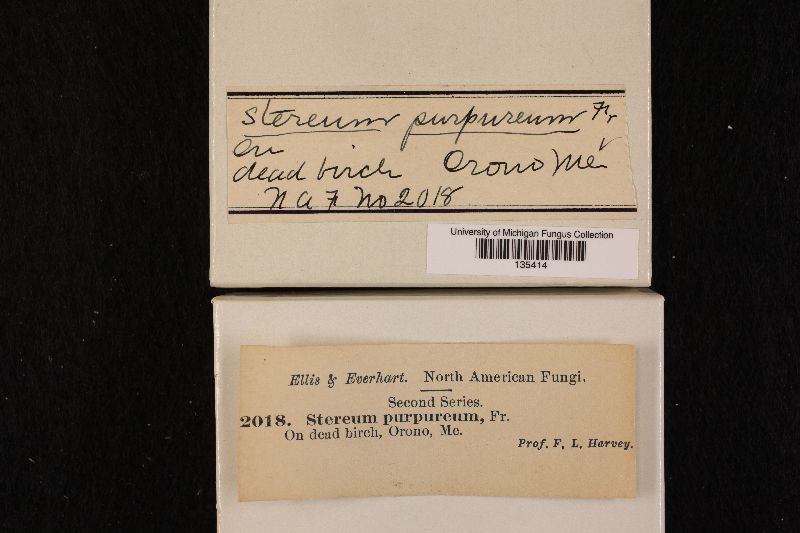 Stereum purpureum Fr
On
dead birch Orono Me
N A F No 2018
University of Michigan Fungus Collection
135414
Ellis & Everhart. North American Fungi.
Second Series.
2018. Stereum purpureum, Fr.
On dead birch, Orono, Me.
Prof. F. L. Harvey.